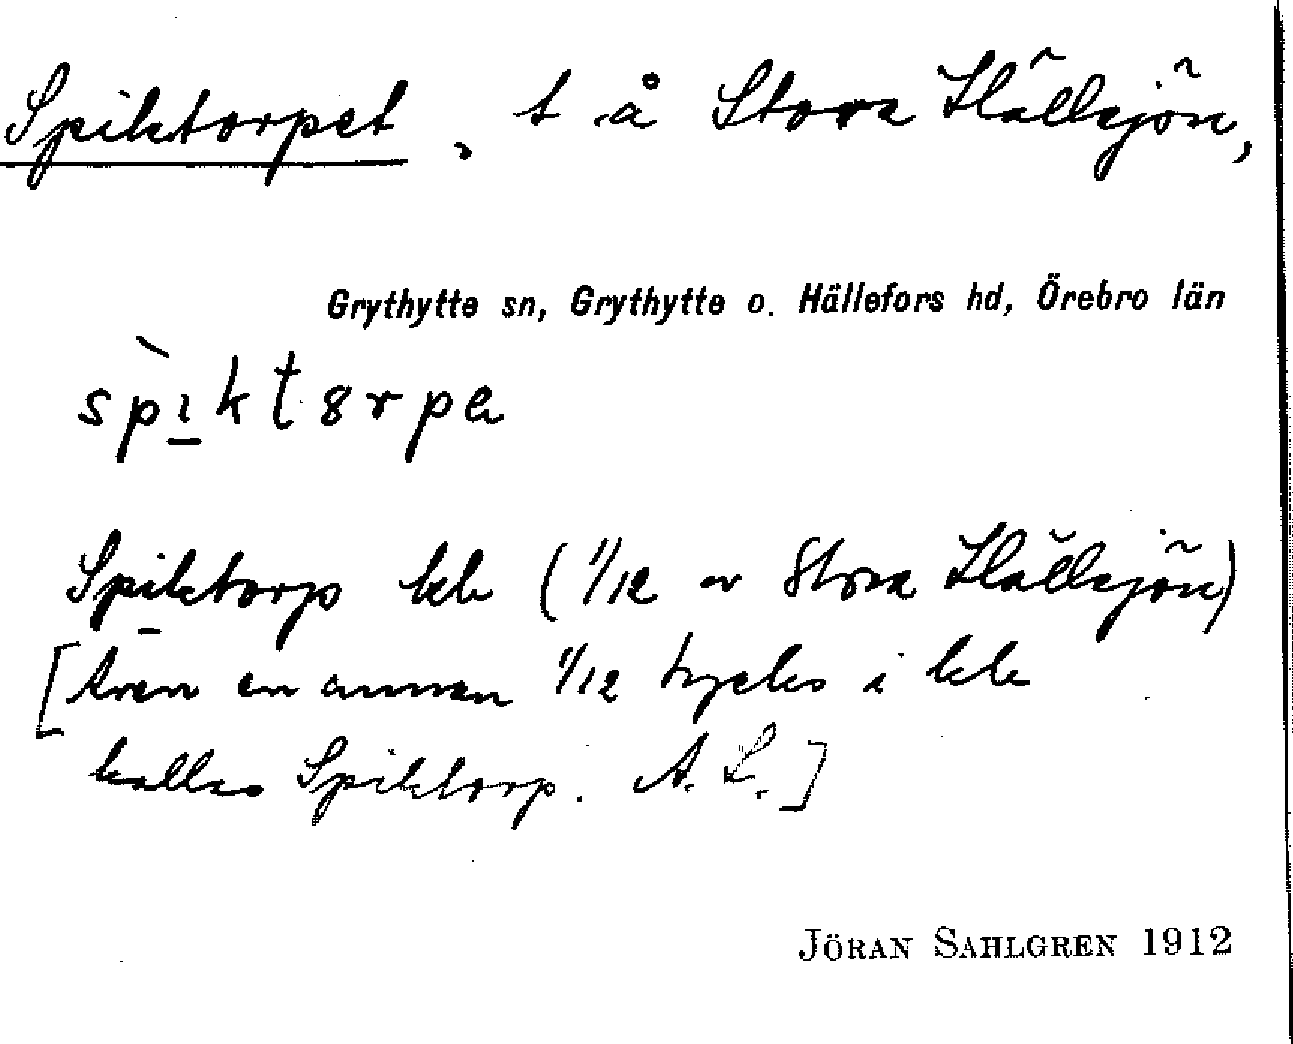 Spiktorpet, t å Stora Hällsjön,
Grythytte sn, Grythytte o. Hällefors hd, Örebro län
spı̱kt8rpa
Spiktorp kk (1/12 av Stora Hällsjön)
[Även en annan 1/12 tycks i kk
kallas Spiktorp. A. L.]
JÖRAN SAHLGREN 1912